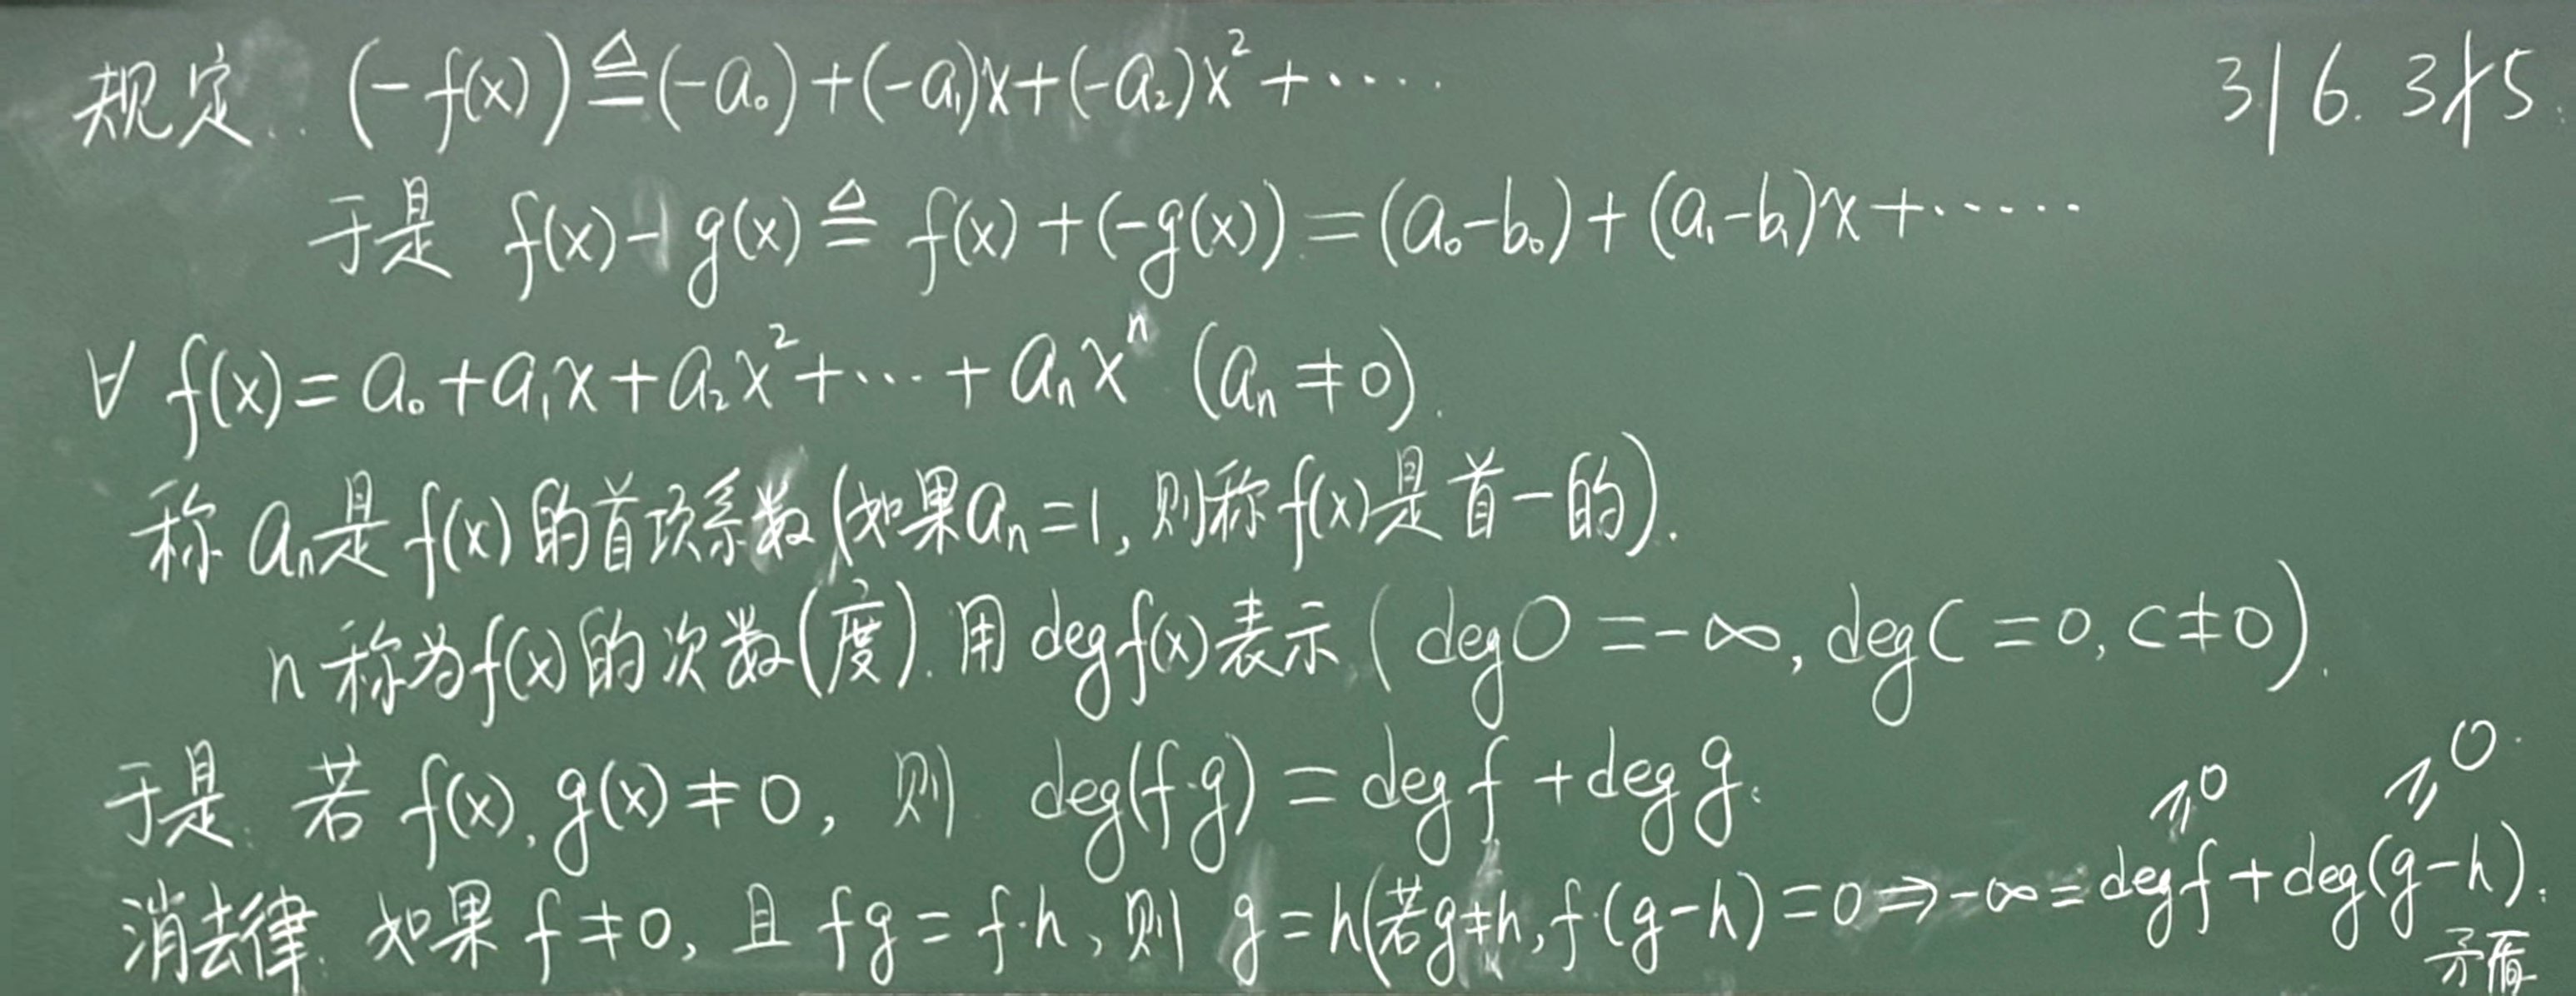 规定: (-f(x)) ≜ (-a₀)+(-a₁)x+(-a₂)x²+····· 3|6. 3∤5.
于是 f(x)-g(x) ≜ f(x)+(-g(x))=(a₀-b₀)+(a₁-b₁)x+······
∀ f(x)=a₀+a₁x+a₂x²+···+aₙxⁿ (aₙ≠0).
称 aₙ是 f(x) 的首项系数(如果aₙ=1, 则称f(x)是首一的).
n 称为f(x)的次数(度). 用 deg f(x) 表示 (deg 0 = -∞, deg C = 0, C≠0).
于是: 若 f(x), g(x)≠0, 则 deg(f·g) = deg f + deg g.
消去律: 如果 f≠0, 且 fg = f·h, 则 g=h(若g≠h, f·(g-h)=0 ⇒ -∞ = deg f + deg(g-h).
⩾0 ⩾0.
矛盾